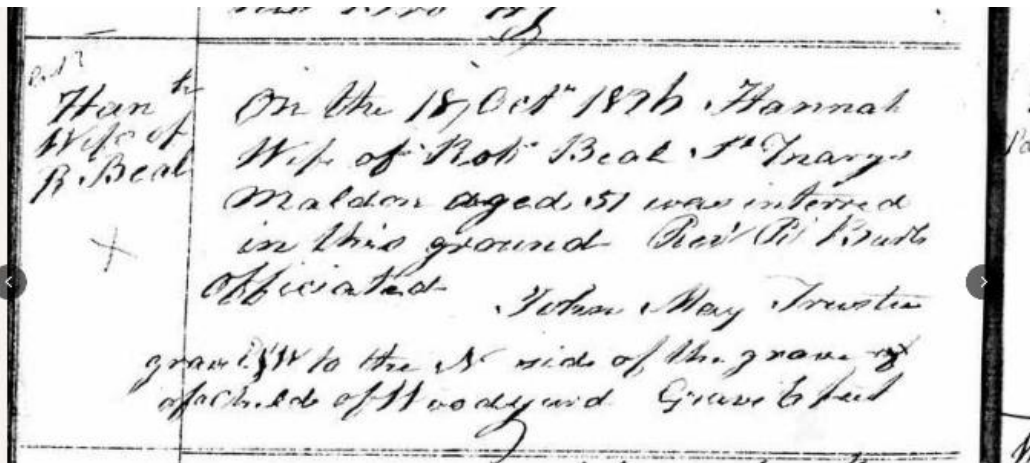 Hanh
Wife of
R. Beal
On the 18, Octr 1826 Hannah
Wife of Robt Beal St Marys
Maldon aged 51 was interred
in this ground Revd R Burls
officiated
John May Trustee
grave E & W to the N side of the grave of
of a child of Woodyard Grave 6 feet